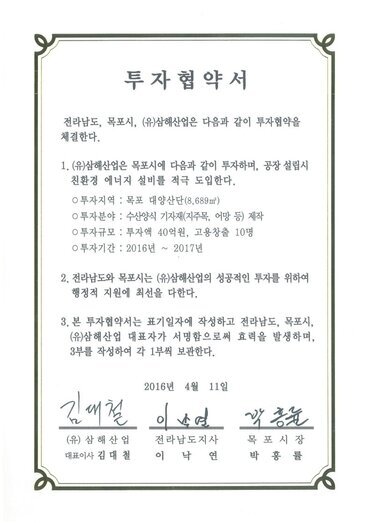 투자협약서
전라남도, 목포시, (유)삼해산업은 다음과 같이 투자협약을
체결한다.
1. (유)삼해산업은 목포시에 다음과 같이 투자하며, 공장 설립시
친환경 에너지 설비를 적극 도입한다.
○투자지역 : 목포 대양산단(8,689㎡)
○투자분야 : 수산양식 기자재(지주목, 어망 등) 제작
○투자규모 : 투자액 40억원, 고용창출 10명
○투자기간 : 2016년 ~ 2017년
2. 전라남도와 목포시는 (유)삼해산업의 성공적인 투자를 위하여
행정적 지원에 최선을 다한다.
3. 본 투자협약서는 표기일자에 작성하고 전라남도, 목포시,
(유)삼해산업 대표자가 서명함으로써 효력을 발생하며,
3부를 작성하여 각 1부씩 보관한다.
2016년 4월 11일
김대철 이낙연 박홍률
(유) 삼해산업 전라남도지사 목포시장
대표이사 김대철 이낙연 박홍률